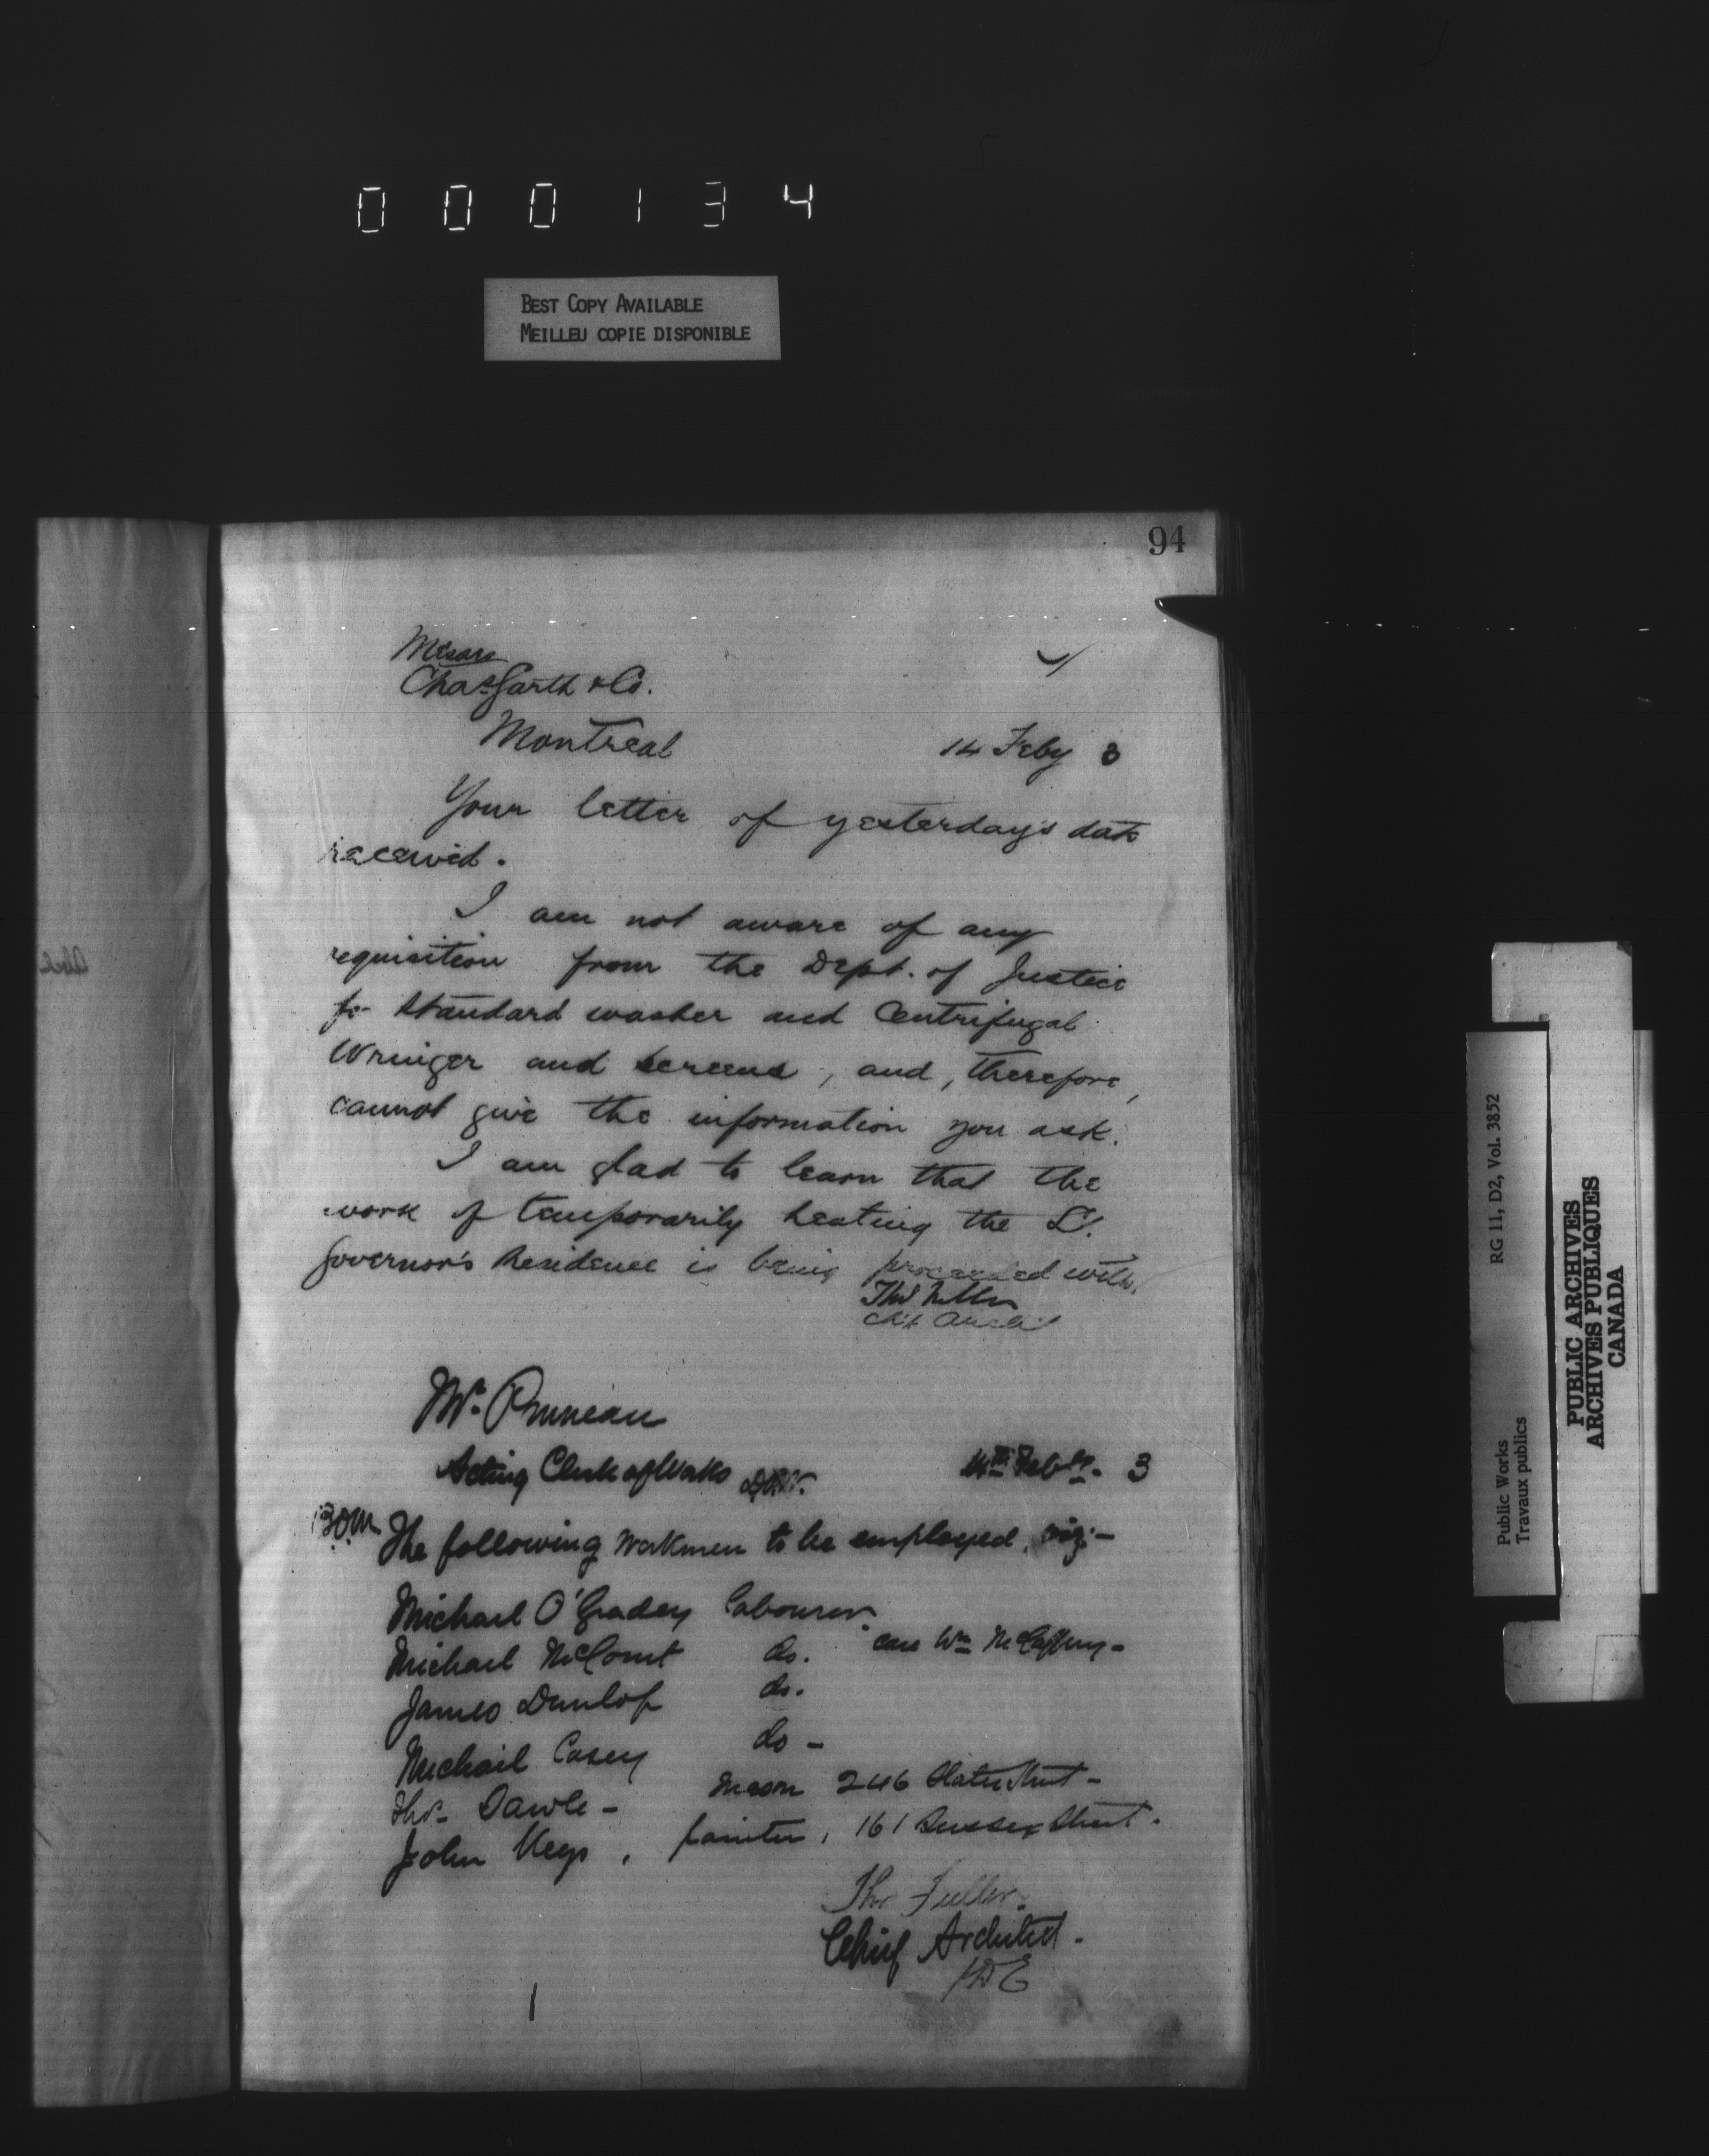 000134
BEST COPY AVAILABLE
MEILLEU COPIE DISPONIBLE
94
Messrs
Chas Garth & Co.
Montreal
14 Feby 3
Your letter of yesterday's date
received.
I am not aware of any
requisition from the Dept. of Justice
for Standard washer and Centrifugal
Wringer and screens, and, therefore,
cannot give the information you ask.
I am glad to learn that the
work of temporarily heating the Lt.
Governor's Residence is being proceeded with.
Thos Fuller
Ch't Archt
Mr. Pruneau
Acting Clerk of Works
14th Feby. 3
The following workmen to be employed, viz:—
Michael O'Gradey Labourer.
Michael McCourt do. care Wm McCaffrey-
James Dunlop do.
Michael Casey do -
Thos. Dawle - Mason 246 Slater Street -
John Keys, painter, 161 Sussex Street.
Thos Fuller.
Chief Architect.
RG 11, D2, Vol. 3852
Public Works
Travaux publics
PUBLIC ARCHIVES
ARCHIVES PUBLIQUES
CANADA